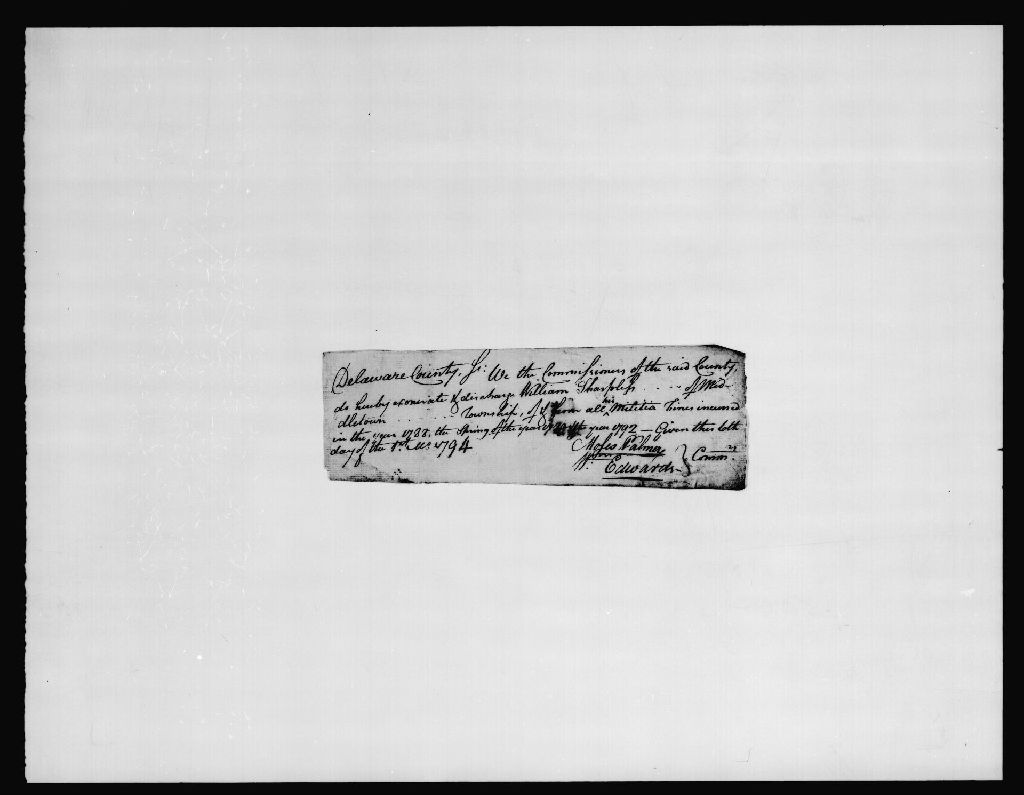 Delaware County, Ss: We the Commissioners of the said County,
do hereby exonerate & discharge William Sharpless of Mid-
dletown Township, of & from all his Militia Fines incurred
in the year 1788, the Spring of the year the year 1792 — Given this
day of the 1794
Moses Palmer
Edwards } Commrs